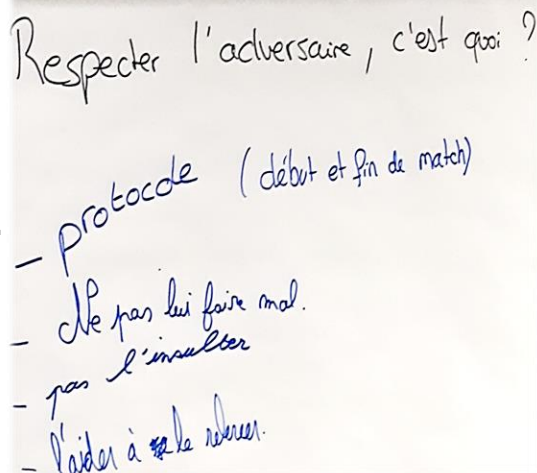 Respecter l'adversaire, c'est quoi ?
- protocole (début et fin de match)
- Ne pas lui faire mal.
- pas l'insulter
- l'aider à le relever.